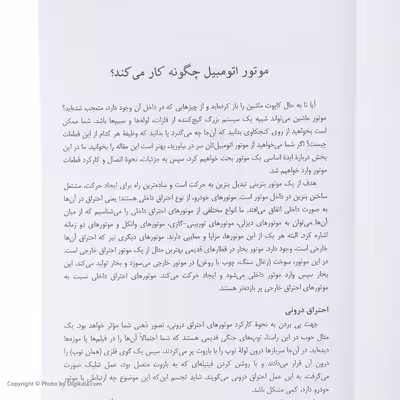 موتور اتومبیل چگونه کار می‌کند؟
آیا تا به حال کاپوت ماشین را باز کرده‌اید و از چیزهایی که در داخل آن وجود دارد، متعجب شده‌اید؟
موتور ماشین می‌تواند شبیه یک سیستم بزرگ گیج‌کننده از فلزات، لوله‌ها و سیم‌ها باشد. شما ممکن
است بخواهید از روی کنجکاوی بدانید که آن‌جا چه می‌گذرد یا بدانید که وظیفهٔ هر کدام از این قطعات
چیست؟ اگر شما می‌خواهید از موتور اتومبیل‌تان سر در بیاورید، بهتر است این مقاله را بخوانید. ما در این
بخش دربارهٔ ایدهٔ اساسی یک موتور بحث خواهیم کرد، سپس به جزئیات، نحوهٔ اتصال و کارکرد قطعات
موتور وارد خواهیم شد.
هدف از یک موتور بنزینی تبدیل بنزین به حرکت است و ساده‌ترین راه برای ایجاد حرکت، مشتعل
ساختن بنزین در داخل موتور است. موتورهای خودرو، از نوع احتراق داخلی هستند؛ یعنی احتراق در آن‌ها
به صورت داخلی اتفاق می‌افتد. ما انواع مختلفی از موتورهای احتراق داخلی را می‌شناسیم که از میان
آن‌ها می‌توان به موتورهای دیزلی، موتورهای توربینی-گازی، موتورهای وانکل و موتورهای دو زمانه
اشاره کرد. البته هر یک از این موتورها، مزایا و معایبی دارند. موتورهای دیگری نیز که احتراق آن‌ها
خارجی است، وجود دارد. موتور بخار در قطارهای قدیمی بهترین مثال از یک موتور احتراق خارجی است.
در این موتور، سوخت (زغال سنگ، چوب یا روغن) در موتور خارجی می‌سوزد و بخار تولید می‌کند. این
بخار سپس وارد موتور داخلی می‌شود و ایجاد حرکت می‌کند. موتورهای احتراق داخلی نسبت به
موتورهای احتراق خارجی پر بازده‌تر هستند.
احتراق درونی
جهت پی بردن به نحوهٔ کارکرد موتورهای احتراق درونی، تصور ذهنی شما مؤثر خواهد بود. یک
مثال خوب در این راستا، توپ‌های جنگی قدیمی هستند که شما احتمالاً آن‌ها را در فیلم‌ها یا موزه‌ها
دیده‌اید. در آن‌جا سربازها درون لولهٔ توپ را با باروت پر می‌کردند، سپس یک گوی فلزی (همان توپ) را
درون آن قرار می‌دادند و با روشن کردن فتیله‌ای که به باروت متصل بود، عمل شلیک صورت
می‌گرفت. به این عمل احتراق درونی می‌گویند. شاید تجسم این‌که این موضوع چه ارتباطی با موتور
خودرو دارد، کمی مشکل باشد.
Copyright © Photo by Digikala.com